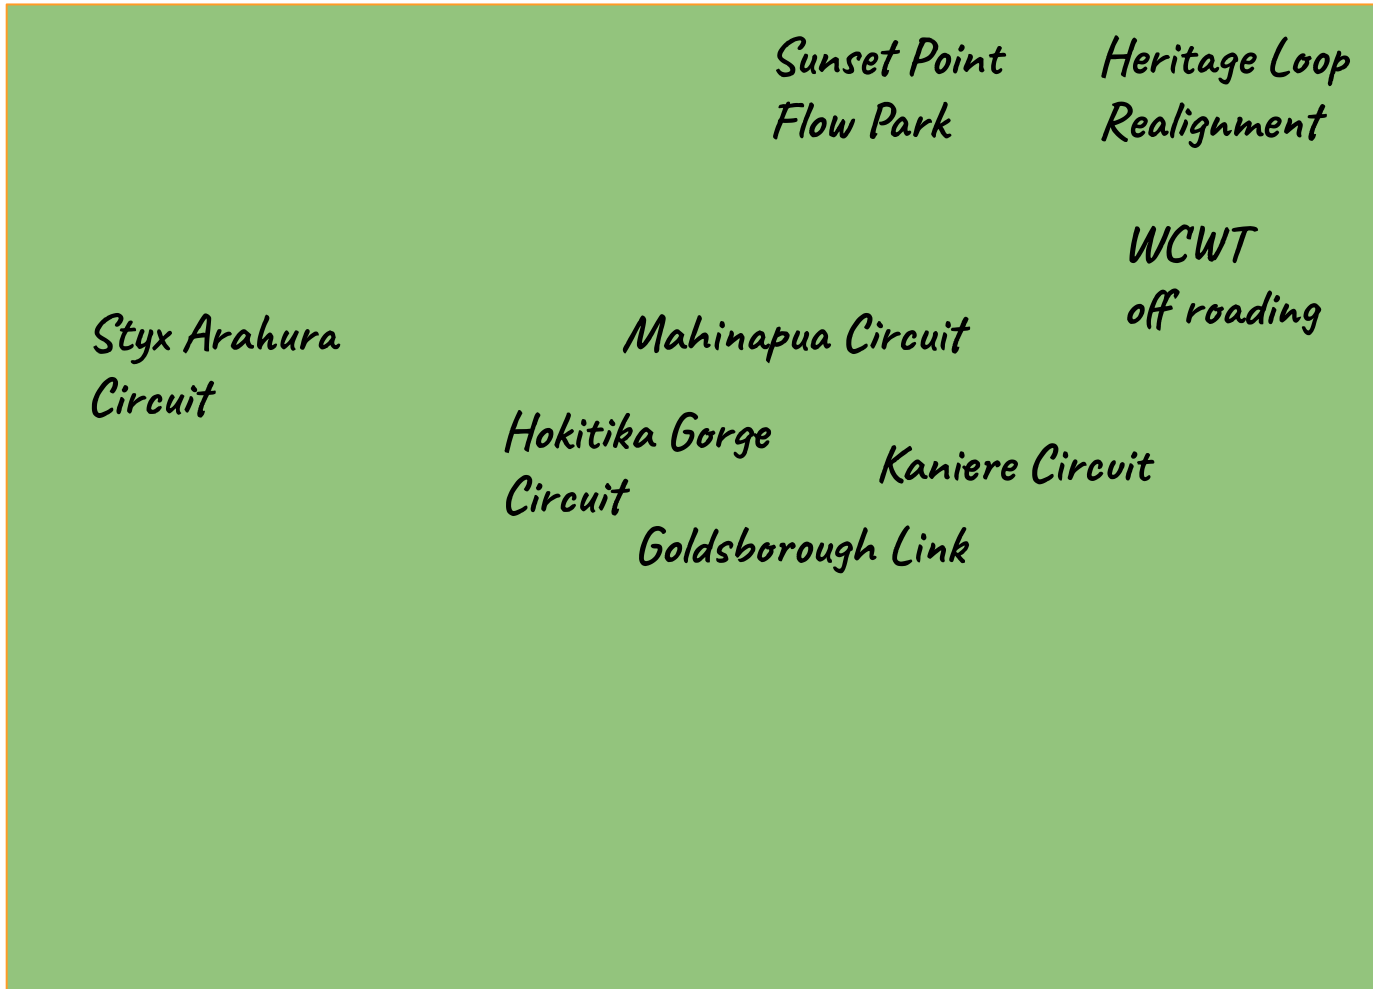 Sunset Point
Flow Park
Heritage Loop
Realignment
WCWT
off roading
Styx Arahura
Circuit
Mahinapua Circuit
Hokitika Gorge
Circuit
Kaniere Circuit
Goldsborough Link